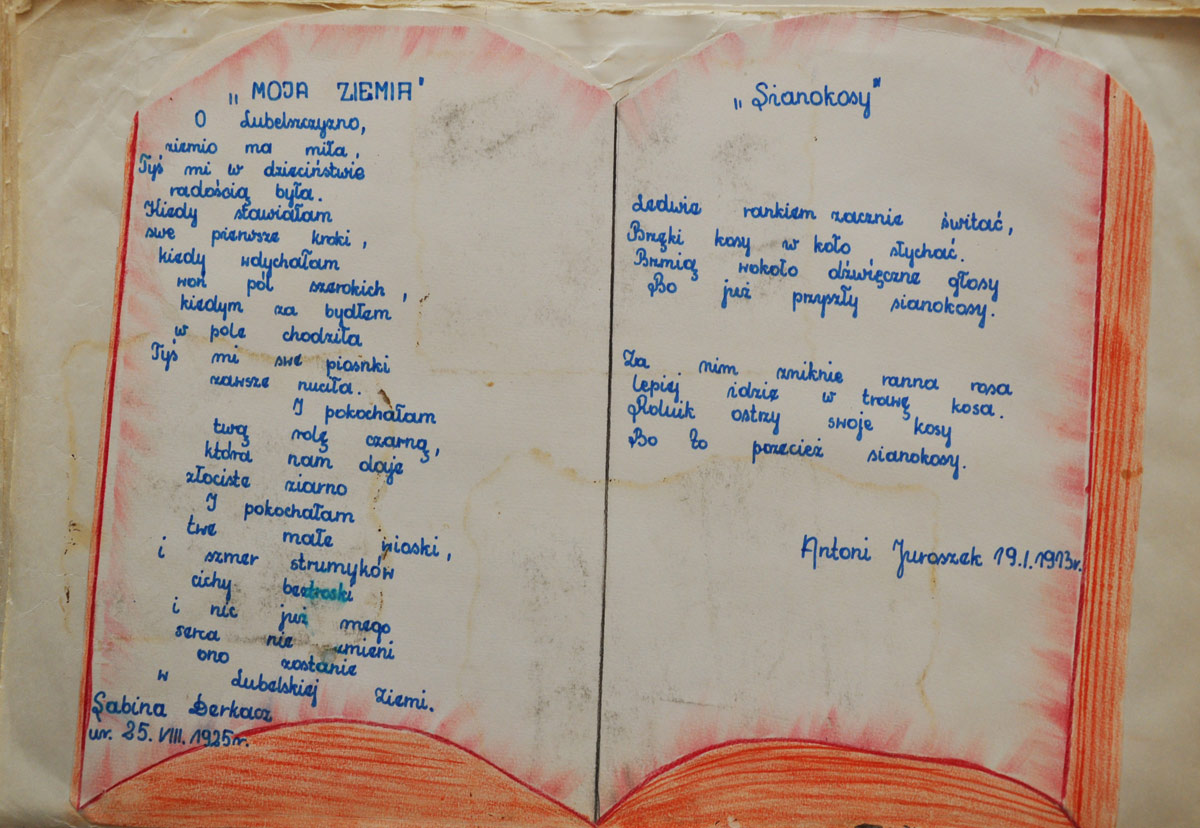 „MOJA ZIEMIA"
O Lubelszczyzno,
ziemio ma miła,
Tyś mi w dzieciństwie
radością była.
Kiedy stawiałam
swe pierwsze kroki,
kiedy wdychałam
woń pól szerokich,
kiedym za bydłem
w pole chodziła
Tyś mi swe piosnki
zawsze nuciła.
I pokochałam
twą rolę czarną,
która nam daje
złociste ziarno
I pokochałam
twe małe wioski,
i szmer strumyków
cichy beztroski
i nic już mego
serca nie zmieni
ono zostanie
w Lubelskiej Ziemi.
Sabina Derkacz
ur. 25. VIII. 1925r.
„Sianokosy"
Ledwie rankiem zacznie świtać,
Brzęki kosy w koło słychać.
Brzmią wokoło dźwięczne głosy
Bo już przyszły sianokosy.
Za nim zniknie ranna rosa
lepiej idzie w trawę kosa.
Rolnik ostrzy swoje kosy
Bo to przecież sianokosy.
Antoni Juroszek 19.I.1913r.